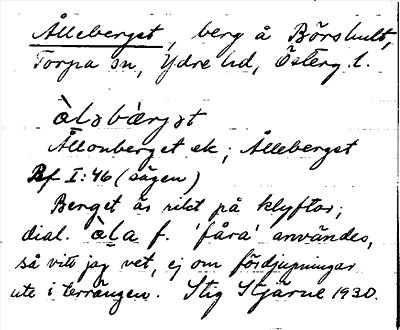 Ålleberget, berg å Börshult,
Torpa sn, Ydre hd, Österg. l.
àləbàrjət
Ållonberget ek; Ålleberget
Rf I:46 (sägen)
Berget är rikt på klyftor;
dial. àla f. 'fåra' användes,
så vitt jag vet, ej om fördjupningar
ute i terrängen. Stig Stjärne 1930.